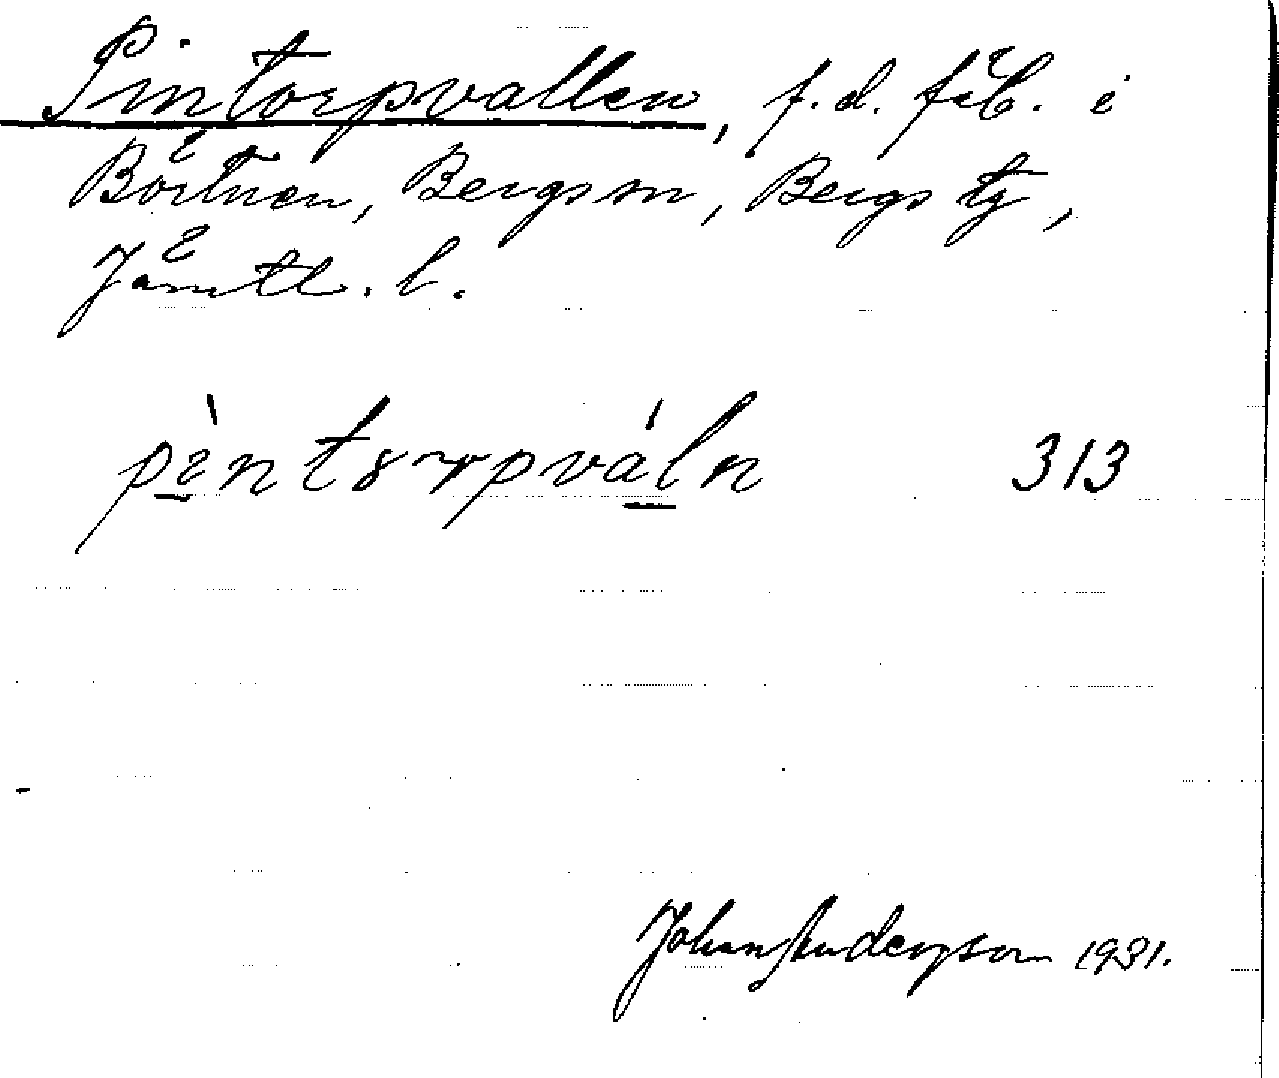 Pintorpvallen, f.d. fäb. i
Börtnen, Bergs sn, Bergs tg,
Jämtl. l.
pèntsrpváln 313
Johan Anderson 1931.